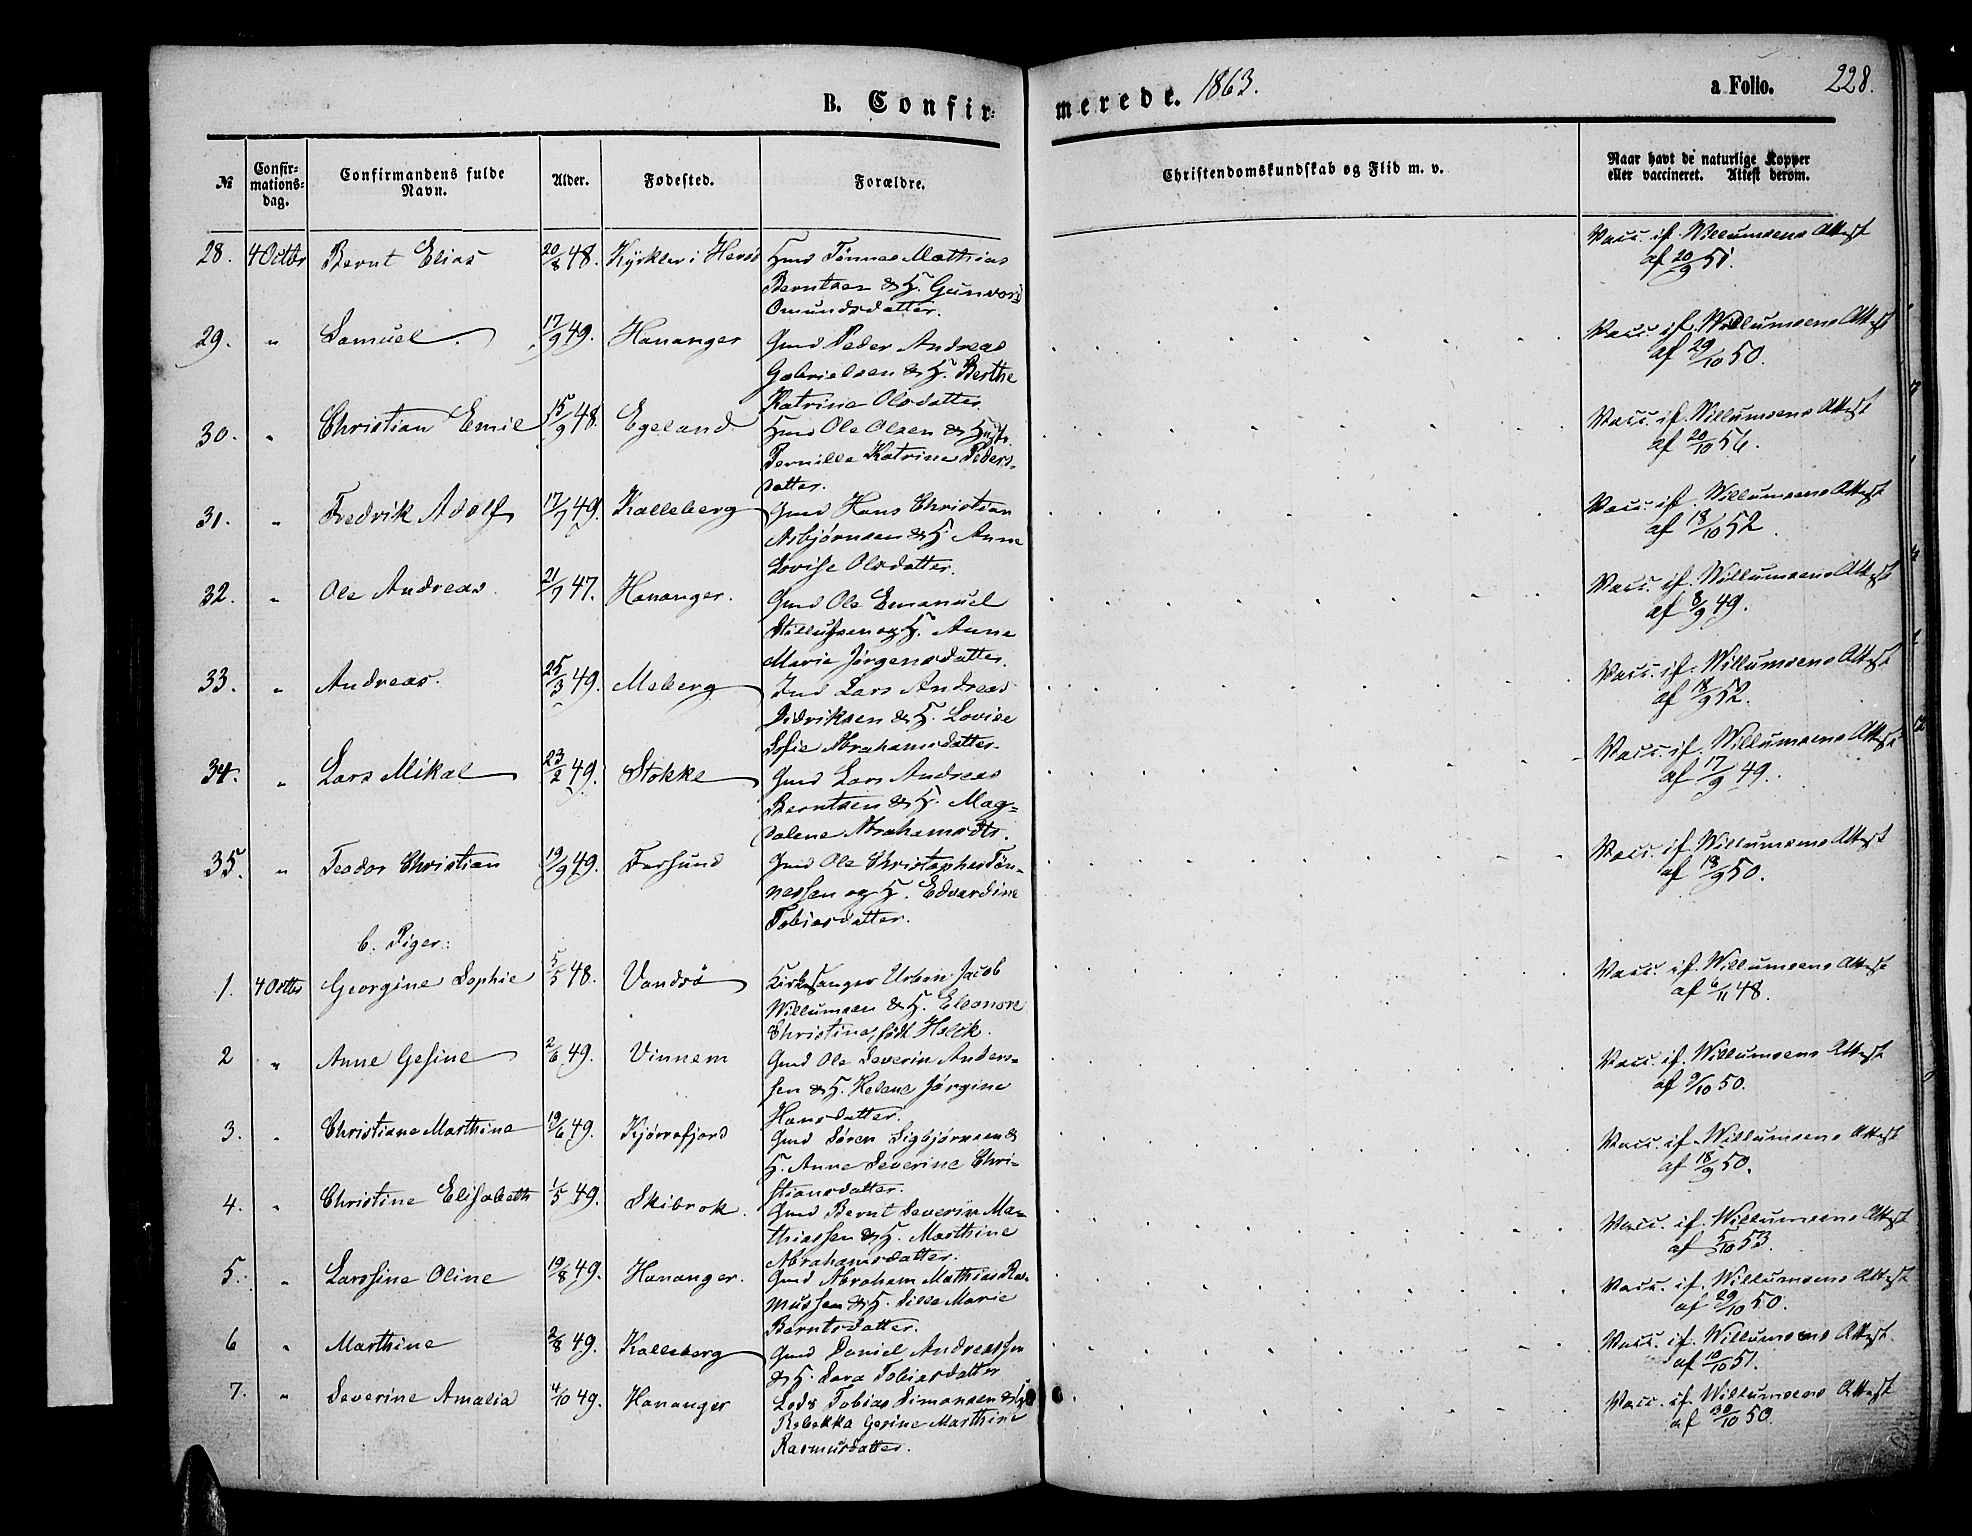 B. Confir=
merede. 1863.
a Folio. 228.
№
Confir-
mations-
dag.
Confirmandens fulde
Navn.
Alder.
Fødested.
Forældre.
Christendomskundskab og Flid m. v.
Naar havt de naturlige Kopper
eller vaccineret. Attest derom.
28. 4 Octbr Bernt Elias 20/8 48. i Gmd Tønnes Mathias
Berntsen & H. Gunvor
Omundsdatter.
Vacc. if. Willumsens Attest
af 20/9 51.
29. " Samuel. 17/9 49. Hananger Gmd Peder Andreas
Gabrielsen & H. Berthe
Katrine Olsdatter.
Vacc. if. Willumsens Attest
af 29/10 50.
30. " Christian Emil 15/9 48. Egeland Gmd Ole Olsen & Hust.
Pernille Katrine Peders-
datter.
Vacc. if. Willumsens Attest
af 20/10 56.
31. " Fredrik Adolf 17/7 49. Kalleberg Gmd Hans Christian
Asbjørnsen & H. Anne
Lovise Olsdatter.
Vacc. if. Willumsens Attest
af 18/10 52.
32. " Ole Andreas. 21/9 47. Hananger. Gmd Ole Emanuel
og H. Anne
Marie Jørgensdatter.
Vacc. if. Willumsens Attest
af 8/9 49.
33. " Andreas. 25/3 49. Meberg Lars Andreas
Didriksen & H. Lovise
Sofie Abrahamsdatter.
Vacc. if. Willumsens Attest
af 18/9 52.
34. " Lars Mikal 23/2 49. Stokke Gmd Lars Andreas
Berntsen & H. Mag=
dalene Abrahamsdtr.
Vacc. if. Willumsens Attest
af 17/9 49.
35. " Teodor Christian 19/9 49. Farsund Gmd Ole Christopher Tøn-
nessen og H. Edvardine
Tobiasdatter.
Vacc. if. Willumsens Attest
af 18/9 50.
b. Piger:
1. 4 Octbr Georgine Sophie 5/5 48. Vandsø Kirkesanger Urban Jacob
Willumsen & H. Eleonore
Christine, født
Vacc. if. Willumsens Attest
af 6/11 48.
2 " Anne Gesine 2/6 49. Vinnem Gmd Ole Severin Anders-
sen & H. Helene Jørgine
Hansdatter.
Vacc. if. Willumsens Attest
af 9/10 50.
3. " Christiane Marthine 19/6 49. Kjørrefjord Gmd Søren Sigbjørnsen &
H. Anne Severine Chri-
stiansdatter.
Vacc. if. Willumsens Attest
af 18/9 50.
4. " Christine Elisabeth 1/5 49. Skibrok. Gmd Bernt Severin Ma-
thiassen & H. Marthine
Abrahamsdatter.
Vacc. if. Willumsens Attest
af 5/10 53.
5. " Larssine Oline 19/8 49. Hananger. Gmd Abraham Mathias Ra-
mussen & H. Sille Marie
Berntsdatter.
Vacc. if. Willumsens Attest
af 29/10 50.
6 " Marthine 2/8 49. Kalleberg Gmd Daniel Andreassen
& H. Sara Tobiasdatter
Vacc. if. Willumsens Attest.
af 10/10 51.
7. " Severine Amalia 4/10 49. Hananger Lods Tobias Simonsen &
Rebekka Gesine Marthine
Rasmusdatter.
Vacc. if. Willumsens Attest
af 30/10 50.